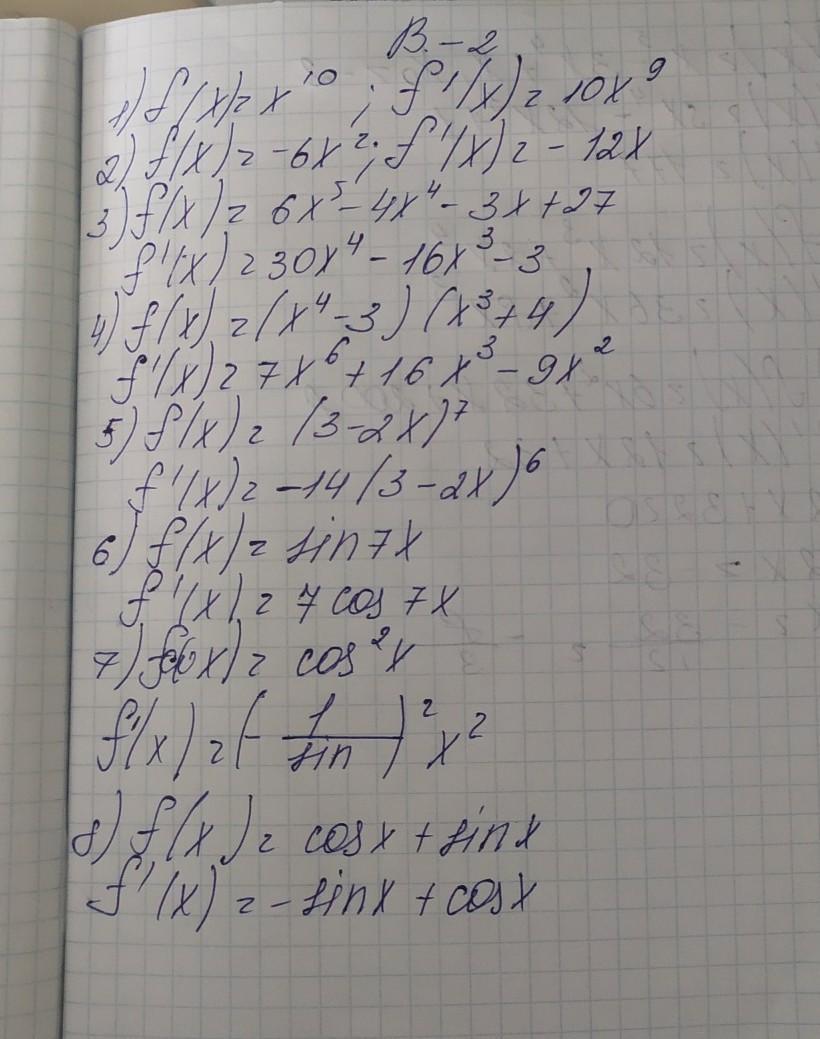 В.-2
1) f(x)=x¹⁰; f'(x)=10x⁹
2) f(x)=-6x²; f'(x)=-12x
3) f(x)=6x⁵-4x⁴-3x+27
f'(x)=30x⁴-16x³-3
4) f(x)=(x⁴-3)(x³+4)
f'(x)=7x⁶+16x³-9x²
5) f(x)=(3-2x)⁷
f'(x)=-14(3-2x)⁶
6) f(x)=sin7x
f'(x)=7cos7x
7) f(x)=cos²x
f'(x)=(-1/sin)²x²
8) f(x)=cosx+sinx
f'(x)=-sinx+cosx